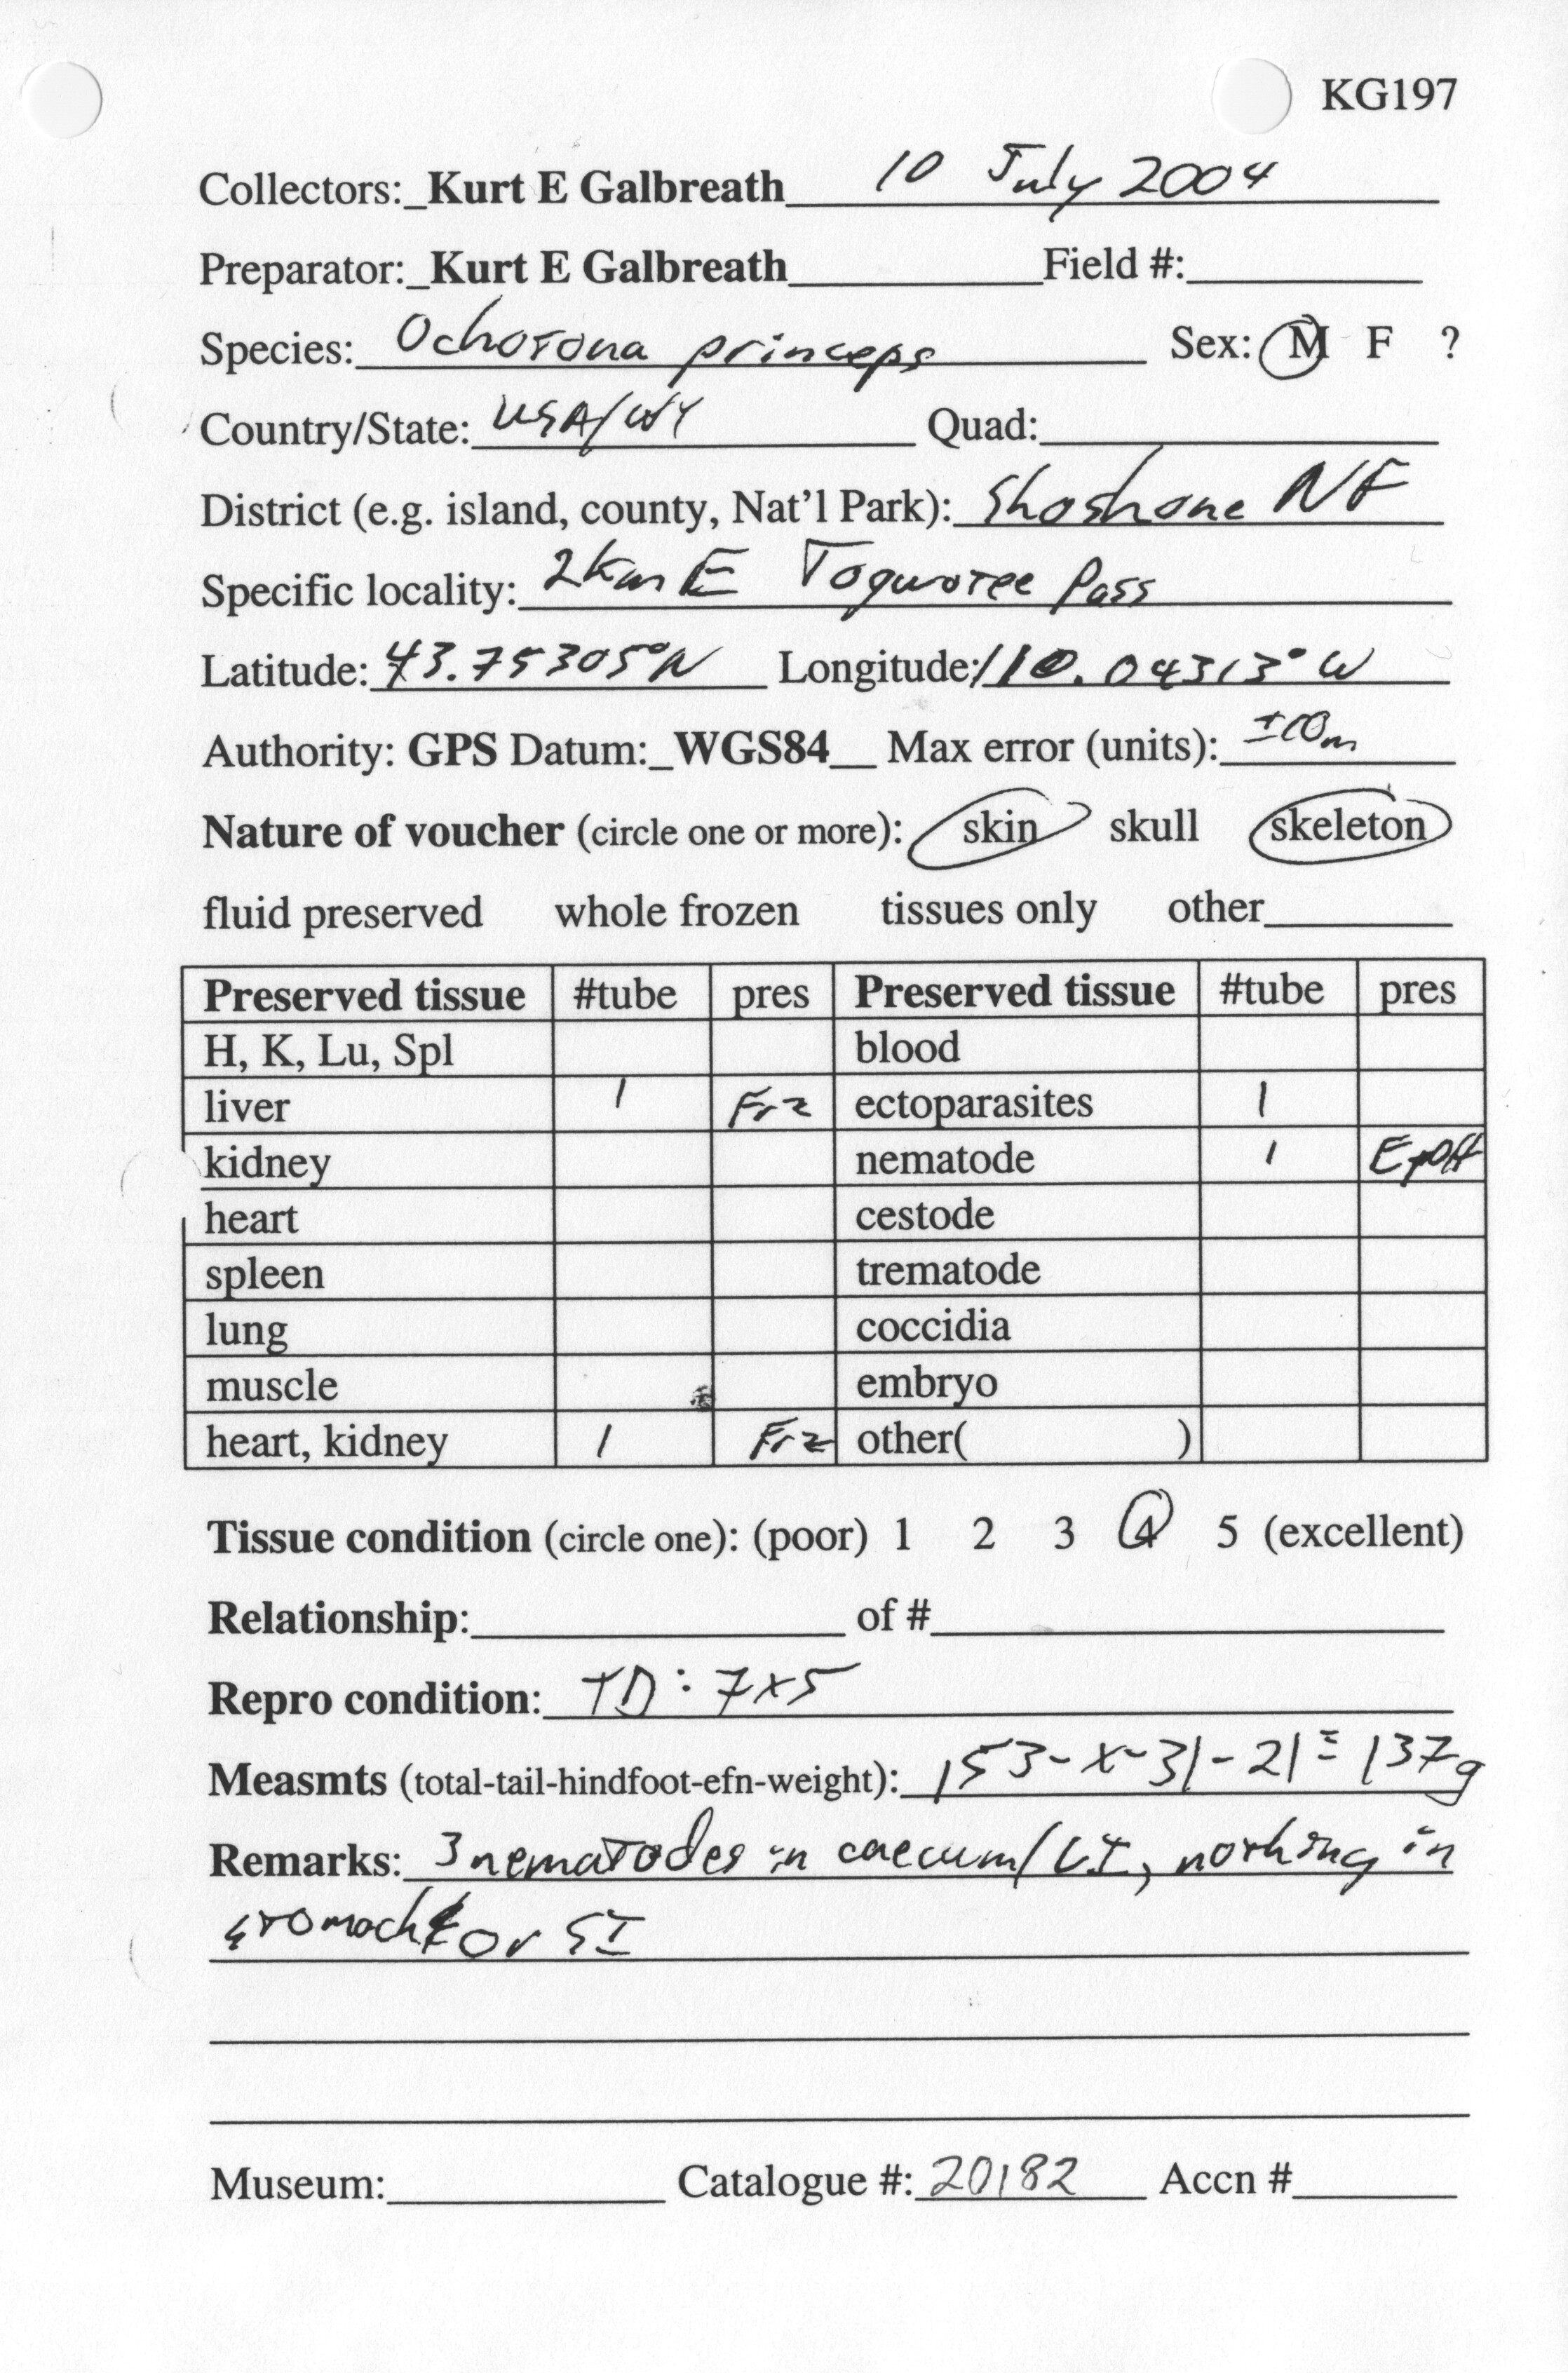 KG197
Collectors:_Kurt E Galbreath 10 July 2004
Preparator:_Kurt E Galbreath Field #:
Species: Ochotona princeps Sex: M F ?
Country/State: USA/WY Quad:
District (e.g. island, county, Nat'l Park): Shoshone NF
Specific locality: 2km E Togwotee Pass
Latitude: 43.75305°N Longitude: 110.04313°W
Authority: GPS Datum:_WGS84__ Max error (units): ±10m
Nature of voucher (circle one or more): skin skull skeleton
fluid preserved whole frozen tissues only other
Preserved tissue #tube pres Preserved tissue #tube pres
H, K, Lu, Spl blood
liver 1 Frz ectoparasites 1
kidney nematode 1 EtOH
heart cestode
spleen trematode
lung coccidia
muscle embryo
heart, kidney 1 Frz other( )
Tissue condition (circle one): (poor) 1 2 3 4 5 (excellent)
Relationship: of #
Repro condition: TD: 7x5
Measmts (total-tail-hindfoot-efn-weight): 153-x-31-21≡137g
Remarks: 3 nematodes in caecum/LI, nothing in
stomach or SI
Museum: Catalogue #: 20182 Accn #